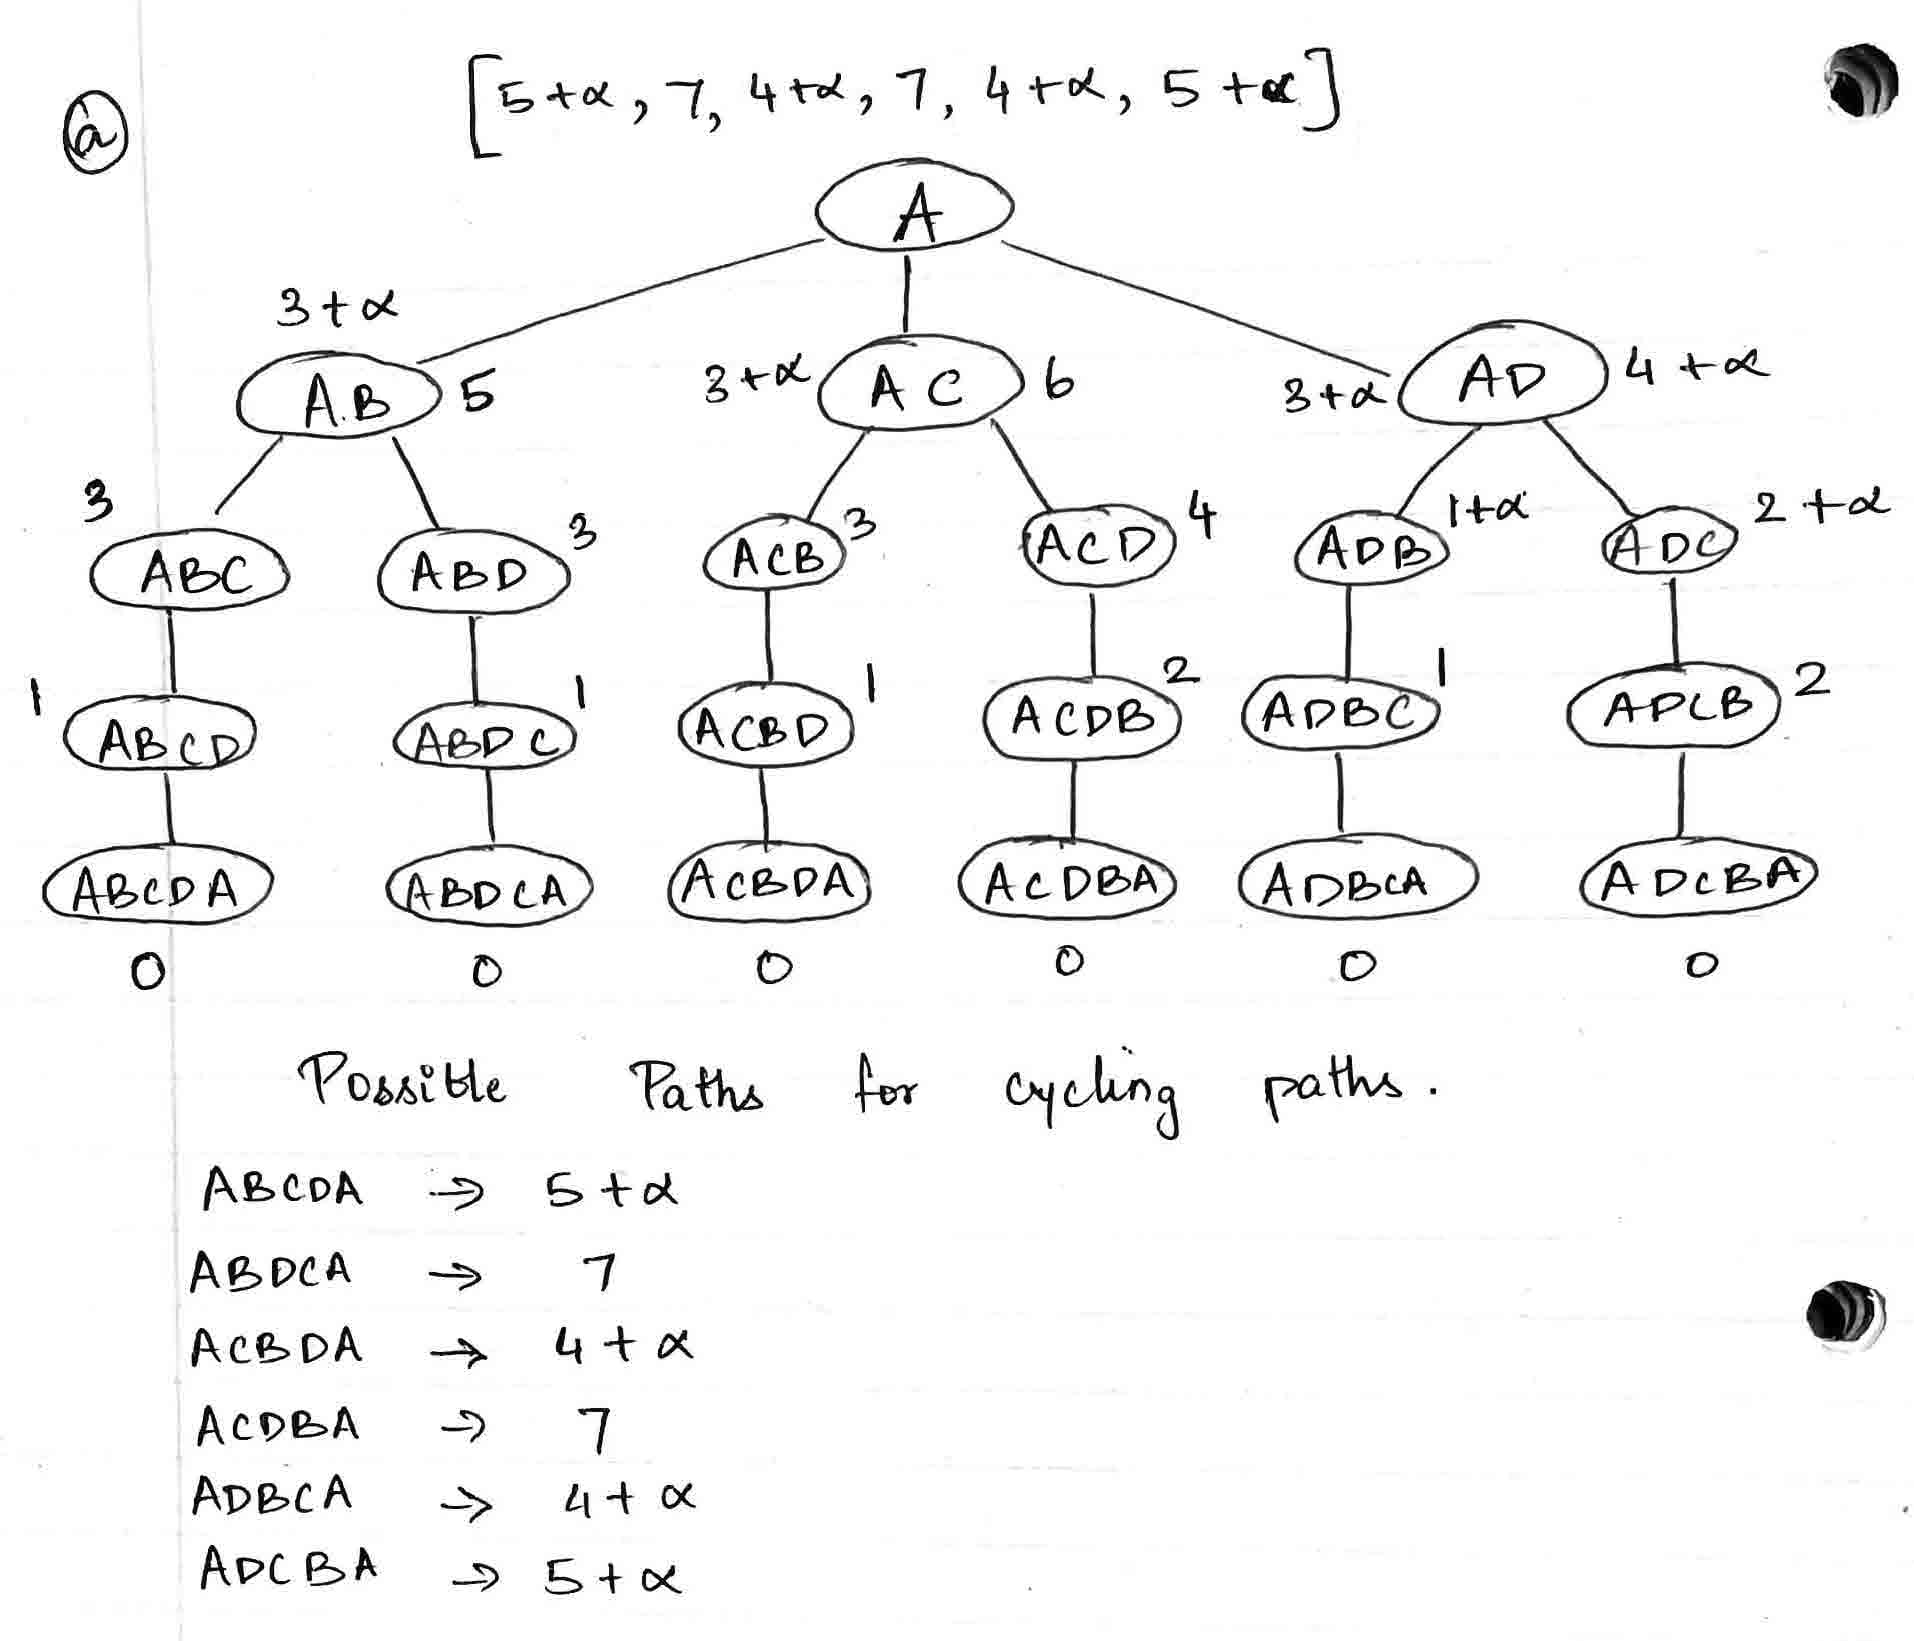 ⓐ [5+α, 7, 4+α, 7, 4+α, 5+α]
A
3+α
A.B 5 3+α AC 6 3+α AD 4+α
3 ABC ABD 3 ACB 3 ACD 4 ADB 1+α ADC 2+α
1 ABCD ABDC 1 ACBD 1 ACDB 2 ADBC 1 ADCB 2
ABCDA ABDCA ACBDA ACDBA ADBCA ADCBA
0 0 0 0 0 0
Possible Paths for cycling paths.
ABCDA → 5+α
ABDCA → 7
ACBDA → 4+α
ACDBA → 7
ADBCA → 4+α
ADCBA → 5+α